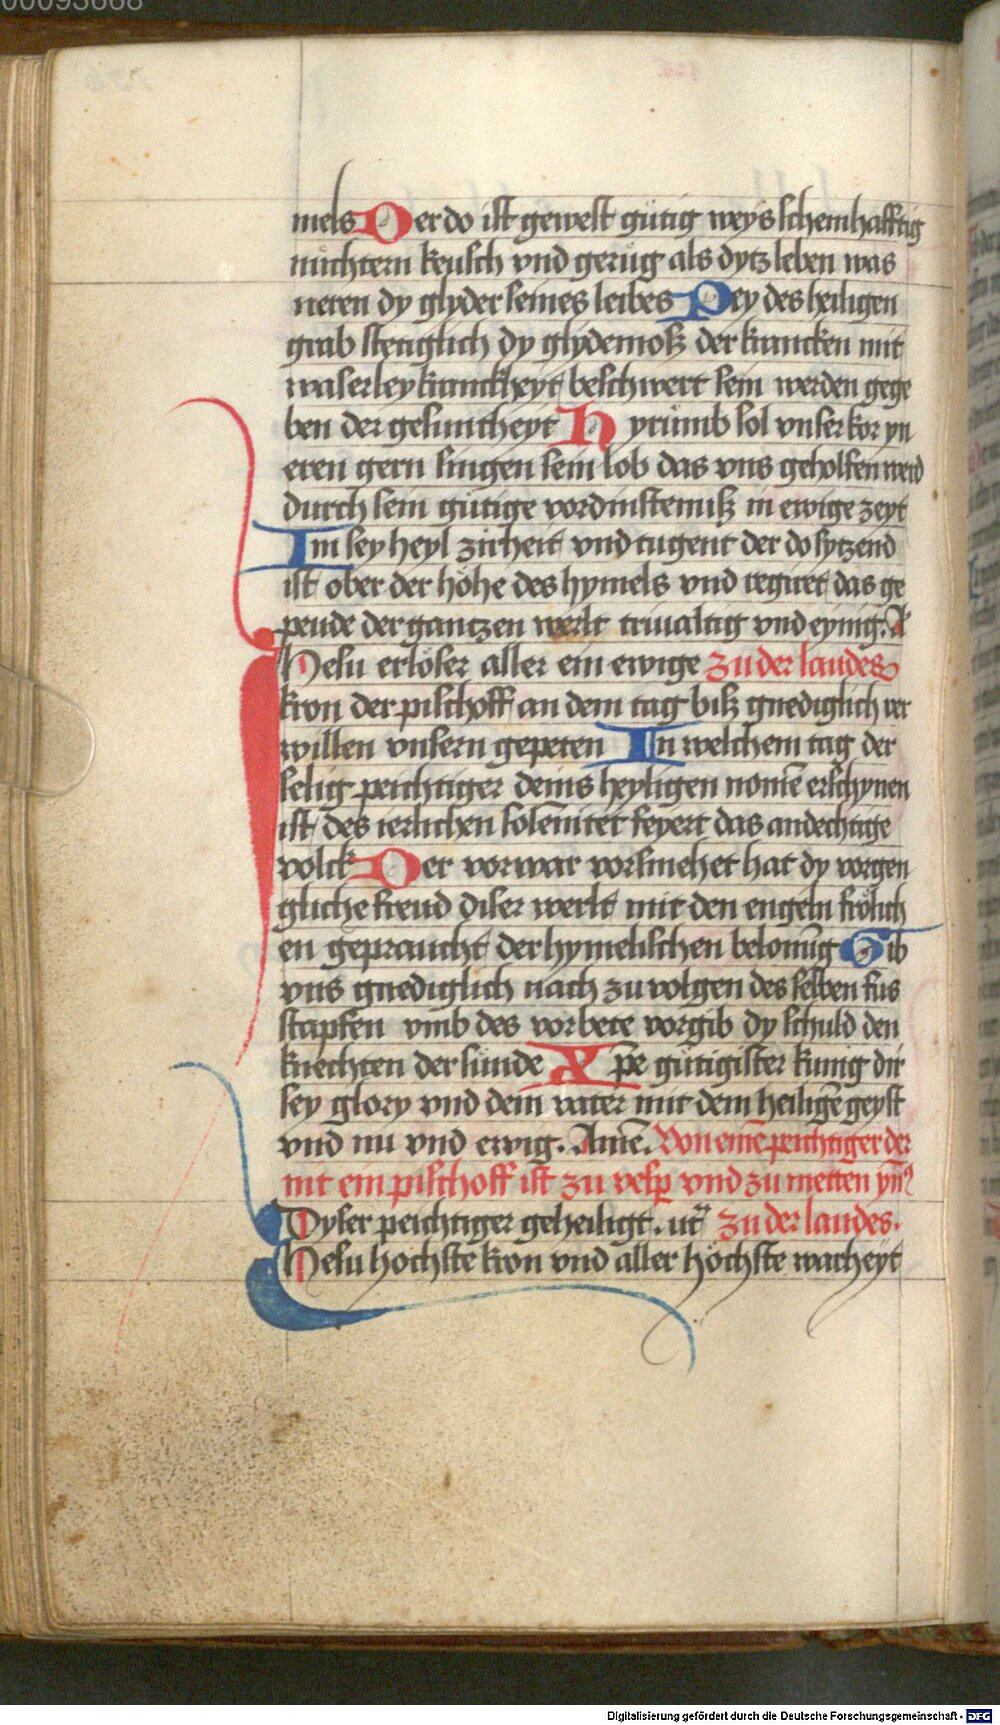 00093668
mels Der do ist gewest gütig weys schemhafftig
nüchtern keusch vnd gerüg als dytz leben was
neren dy glyder seines leibes Pey des heiligen
grab stettiglich dy glydemosz der krancken mit
waserley kranckheyt beschwert sein werden gege
ben der gesuntheyt Hyrumb sol vnser kor yn
eren gern singen sein lob das vns geholfen werd
durch sein gütige vordinstenisz in ewige zeyt
Im sey heyl zirheit vnd tugent der do sytzend
ist ober der höhe des hymels vnd regiret das ge
peude der gantzen werlt triualtig vnd eynig. A
Jhesu erlöser aller ein ewige zu der laudes
kron der pischoff an dem tag bisz gnediglich ver
willen vnsern gepeten In welchem tag der
selig peichtiger deins heyligen nomē erschynen
ist des ierlichen solēnitet feyert das andechtige
volck Der vorwar vorsmehet hat dy vorgen
gliche freud diser werlt mit den engeln frölich
en gepraucht der hymelischen belonūg Gib
vns gnediglich nach zu volgen des selben fus
stapfen vmb des vorbete vorgib dy schuld den
knechten der sunde Xpe gütigister kunig dir
sey glory vnd dem vater mit dem heiligē geyst
vnd nu vnd ewig. Amē. Von einē peichtiger der
nit ein pischoff ist zu vesp vnd zu metten ym
Dyser peichtiger geheiligt. ut zu der laudes.
Jhesu hochste kron vnd aller höchste warheyt
Digitalisierung gefördert durch die Deutsche Forschungsgemeinschaft - DFG